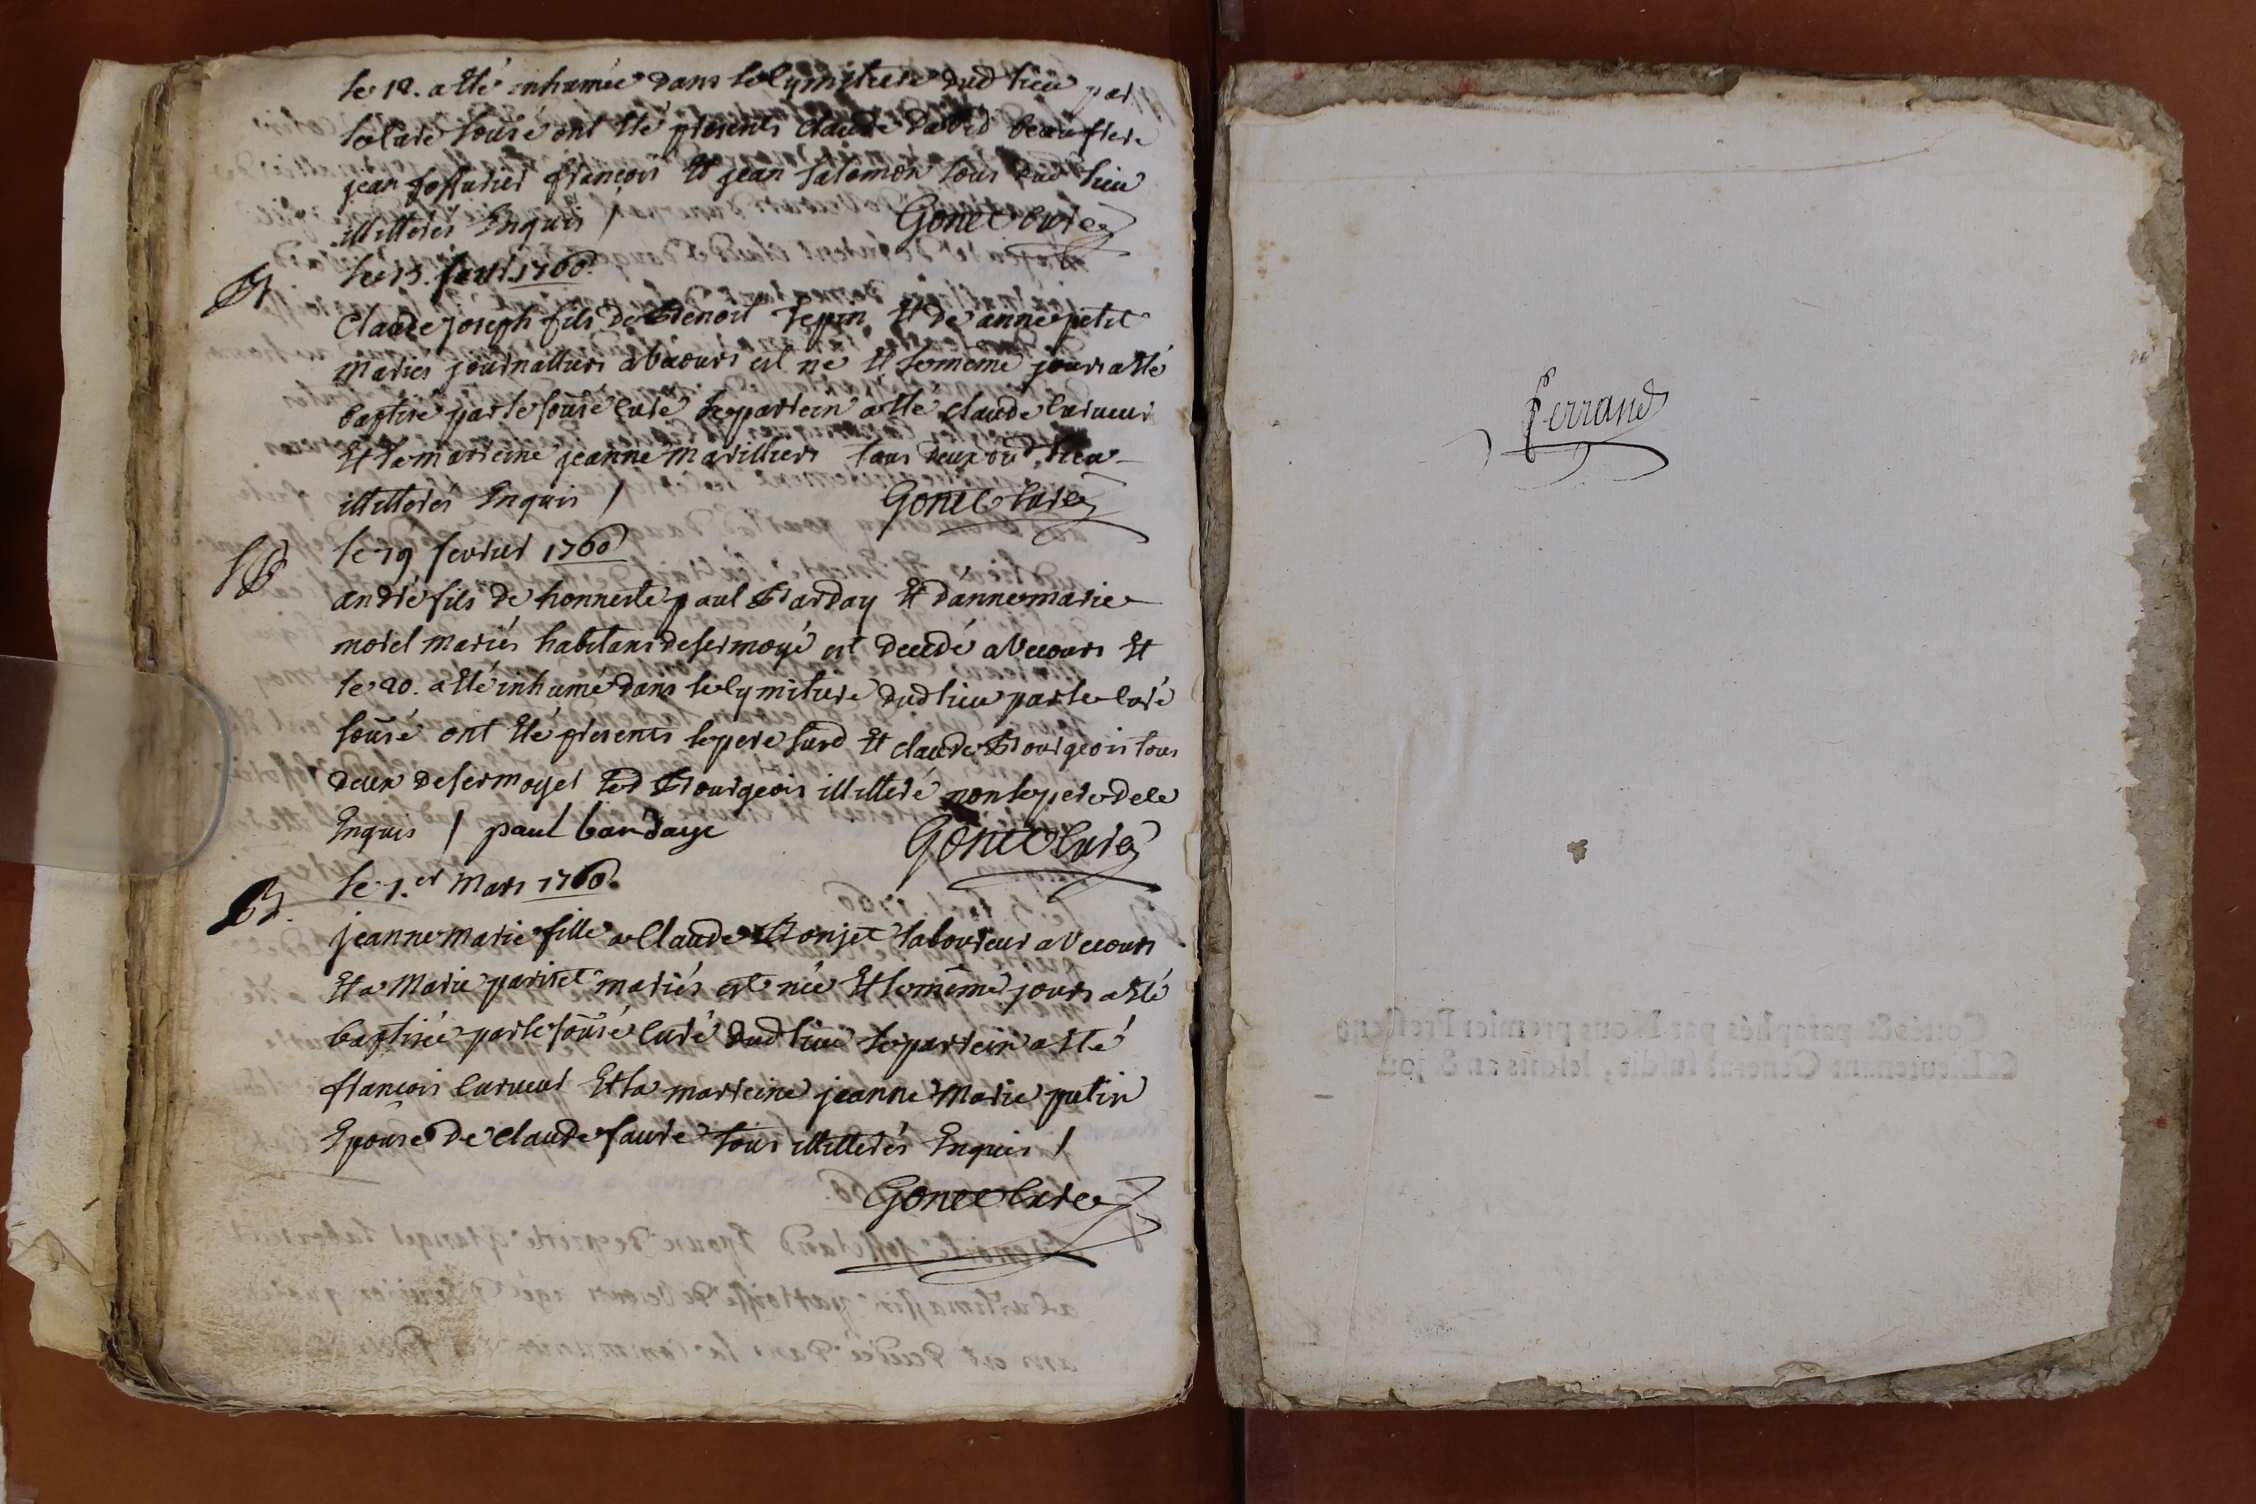 le 12. a été inhumée dans le cymitiere dud lieu par
le curé sousé ont été presents claude david beaufrere
jean fossurier françois et jean salomon tous dud lieu
illitterés Enquis / Gonet curé
B le 15. fevr. 1760.
Claude joseph fils de Benoit Pepin et de anne petit
mariés journalliers a vecours est né et le meme jour a été
baptisé par le sousé curé le parrein a été claude curueur
et la marreine jeanne marilliers tous deux dud lieu
illitterés Enquis / Gonet curé
le 19 fevrier 1760
andré fils de honneste paul Barday et d'anne marie
morel mariés habitans de sermoyé est decedé a Vecours et
le 20. a été inhumé dans le cymitiere dud lieu par le curé
sousé ont été présents le pere susd et claude Bourgeois tous
deux de sermoyer led Bourgeois illitteré non le pere de ce
Enquis / paul bardaye Gonet curé
B. le 1.er Mars 1760.
jeanne marie fille a Claude Bonjet laboureur a Vecours
et a Marie pariset mariés est née et le même jour a été
baptisée par le sousé curé dud lieu le parrein a été
françois curueur et la marreine jeanne Marie putin
Epouse de claude faure tous illitterés Enquis /
Gonet curé
Ferrand
Cottés & paraphés par Nous premier President
& Lieutenant General susdit, lesdits an & jour